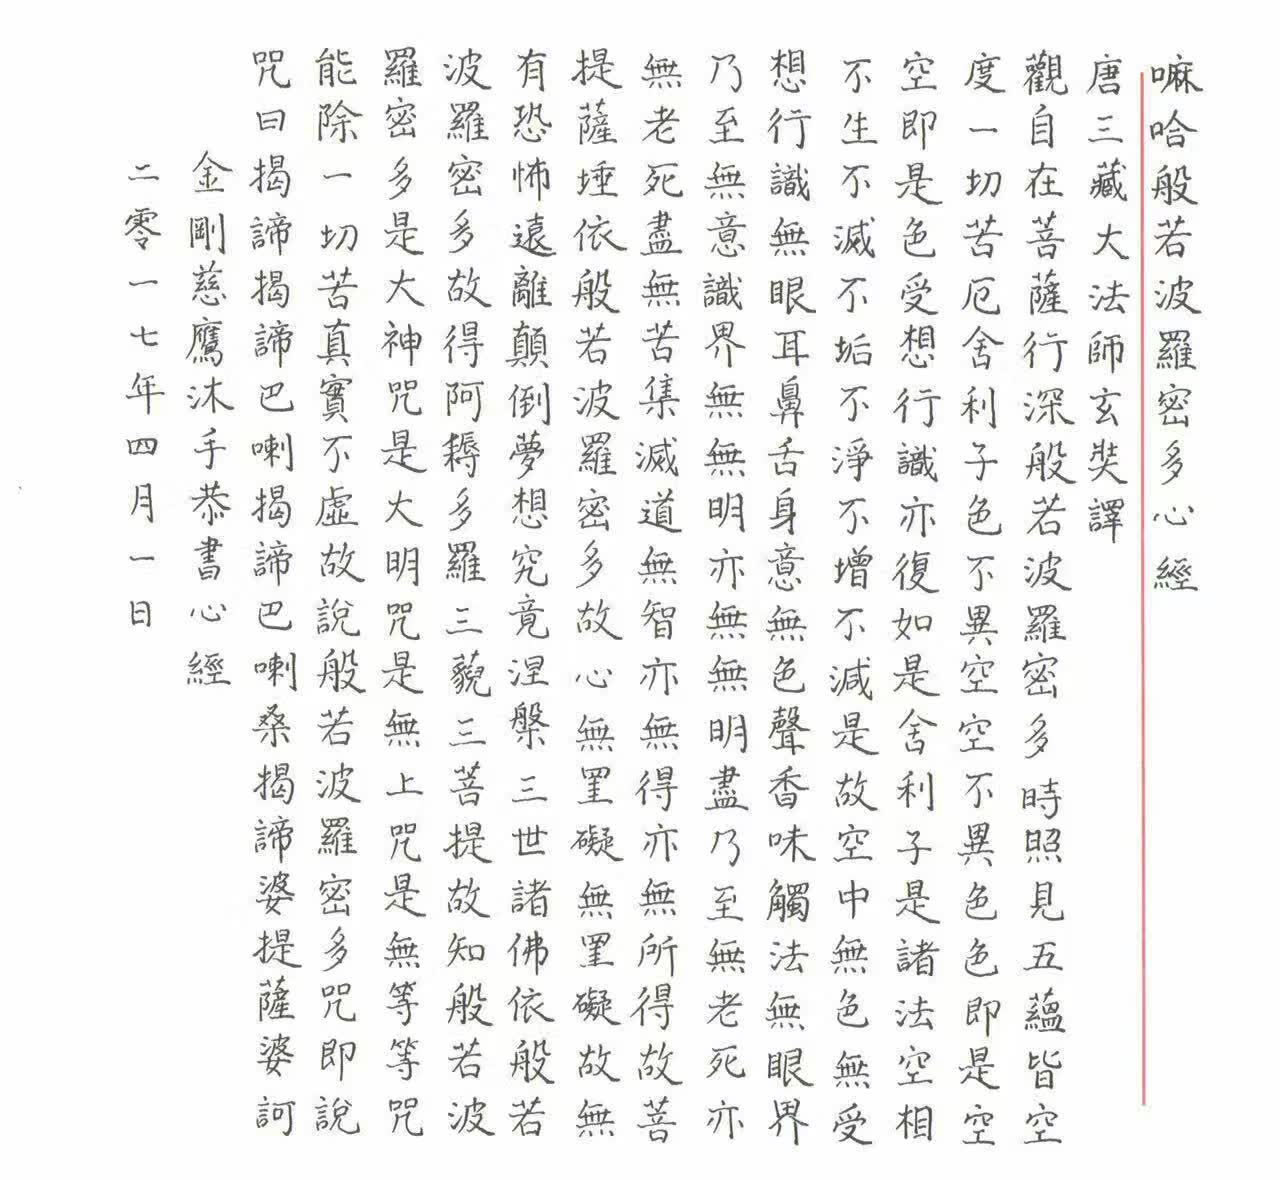 嘛哈般若波羅密多心經
唐三藏大法師玄奘譯
觀自在菩薩行深般若波羅密多時照見五蘊皆空
度一切苦厄舍利子色不異空空不異色色即是空
空即是色受想行識亦復如是舍利子是諸法空相
不生不滅不垢不淨不增不減是故空中無色無受
想行識無眼耳鼻舌身意無色聲香味觸法無眼界
乃至無意識界無無明亦無無明盡乃至無老死亦
無老死盡無苦集滅道無智亦無得亦無所得故菩
提薩埵依般若波羅密多故心無罣礙無罣礙故無
有恐怖遠離顛倒夢想究竟涅槃三世諸佛依般若
波羅密多故得阿耨多羅三藐三菩提故知般若波
羅密多是大神咒是大明咒是無上咒是無等等咒
能除一切苦真實不虛故說般若波羅密多咒即說
咒曰揭諦揭諦巴喇揭諦巴喇桑揭諦婆提薩婆訶
金剛慈鷹沐手恭書心經
二零一七年四月一日